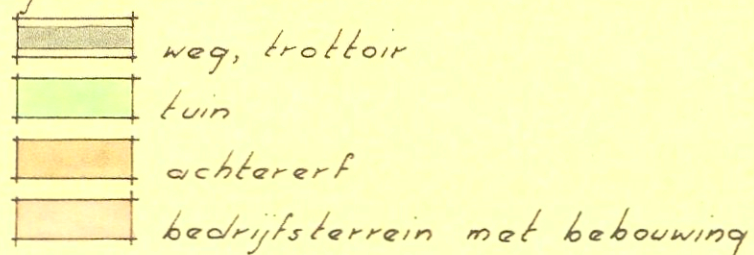 weg, trottoir
tuin
achtererf
bedrijfsterrein met bebouwing